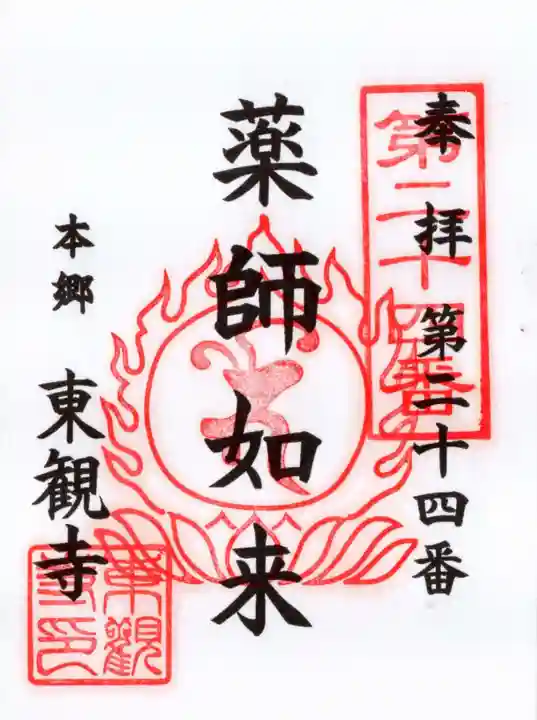 奉拝 第二十四番
第二十四番
薬師如来
本郷 東観寺
東觀
寺印